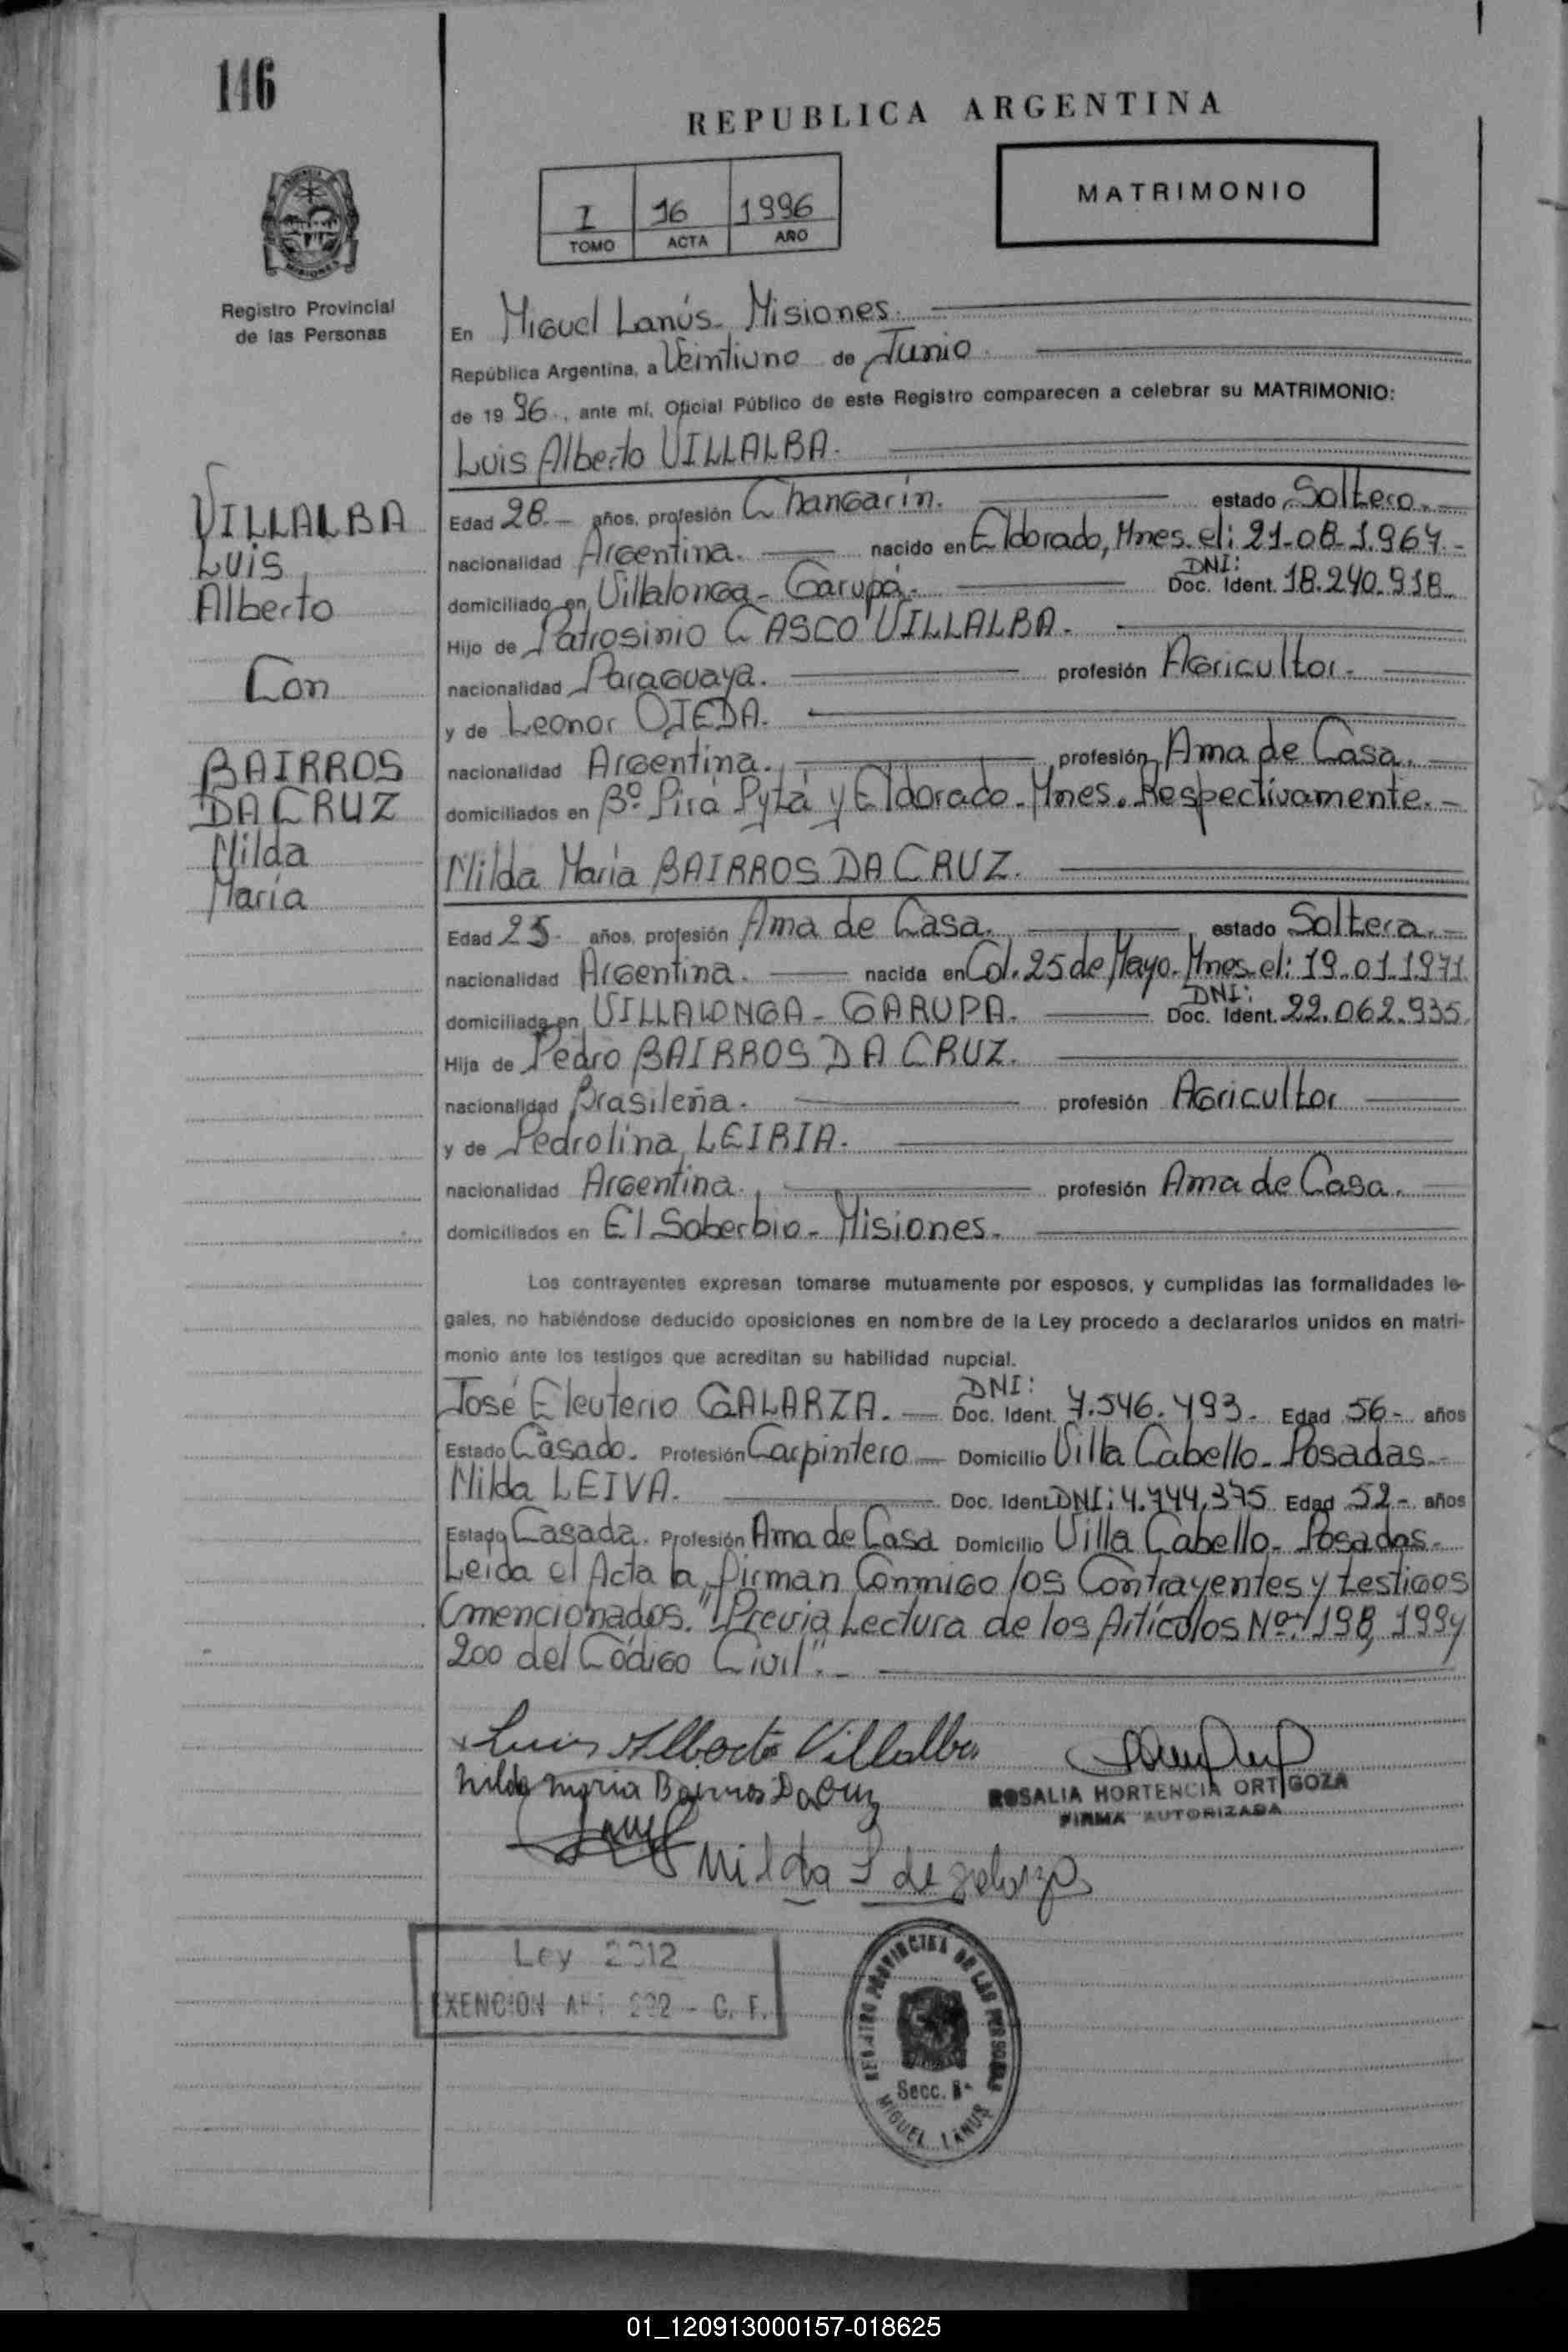 146
REPUBLICA ARGENTINA
MATRIMONIO
I 16 1996
TOMO ACTA AÑO
Registro Provincial
de las Personas
En Miguel Lanús Misiones.
República Argentina, a Veintiuno de Junio.
de 1996., ante mí, Oficial Público de este Registro comparecen a celebrar su MATRIMONIO:
Luis Alberto VILLALBA.
VILLALBA
Luis
Alberto
Con
BAIRROS
DA CRUZ
Nilda
María
Edad 28.- años, profesión Changarín. estado Soltero.-
nacionalidad Argentina. nacido en Eldorado, Mnes. el: 21-08-1.967.-
domiciliado en Villalonga - Garupá. DNI: Doc. Ident. 18.240.918.
Hijo de Patrosinio CASCO VILLALBA.
nacionalidad Paraguaya. profesión Agricultor.
y de Leonor OJEDA.
nacionalidad Argentina. profesión Ama de Casa.
domiciliados en Bº. Pirá Pytá y Eldorado - Mnes. Respectivamente.-
Nilda María BAIRROS DA CRUZ.
Edad 25- años, profesión Ama de Casa. estado Soltera.
nacionalidad Argentina. nacida en Col. 25 de Mayo. Mnes. el: 19.01.1971
domiciliada en VILLALONGA - GARUPA. DNI: Doc. Ident. 22.062.935
Hija de Pedro BAIRROS DA CRUZ.
nacionalidad Brasileña. profesión Agricultor
y de Pedrolina LEIRIA.
nacionalidad Argentina. profesión Ama de Casa.
domiciliados en El Soberbio - Misiones.
Los contrayentes expresan tomarse mutuamente por esposos, y cumplidas las formalidades le-
gales, no habiéndose deducido oposiciones en nombre de la Ley procedo a declararlos unidos en matri-
monio ante los testigos que acreditan su habilidad nupcial.
José Eleuterio GALARZA. DNI: Doc. Ident. 7.546.793. Edad 56- años
Estado Casado. Profesión Carpintero Domicilio Villa Cabello - Posadas.
Nilda LEIVA. Doc. Ident. DNI: 4.744.375 Edad 52- años
Estado Casada. Profesión Ama de Casa Domicilio Villa Cabello - Posadas.
Leida el Acta la firman Conmigo los Contrayentes y testigos
mencionados. "Previa Lectura de los Artículos Nº: 198, 199 y
200 del Código Civil".
Luis Alberto Villalba
Nilda Maria Bairros Da Cruz
ROSALIA HORTENCIA ORTIGOZA
FIRMA AUTORIZADA
Nilda L de Galarza
Ley 2312
EXENCION ART. - C. F.
REGISTRO PROVINCIAL DE LAS PERSONAS
Secc. 8ª
MIGUEL LANUS
01_120913000157-018625